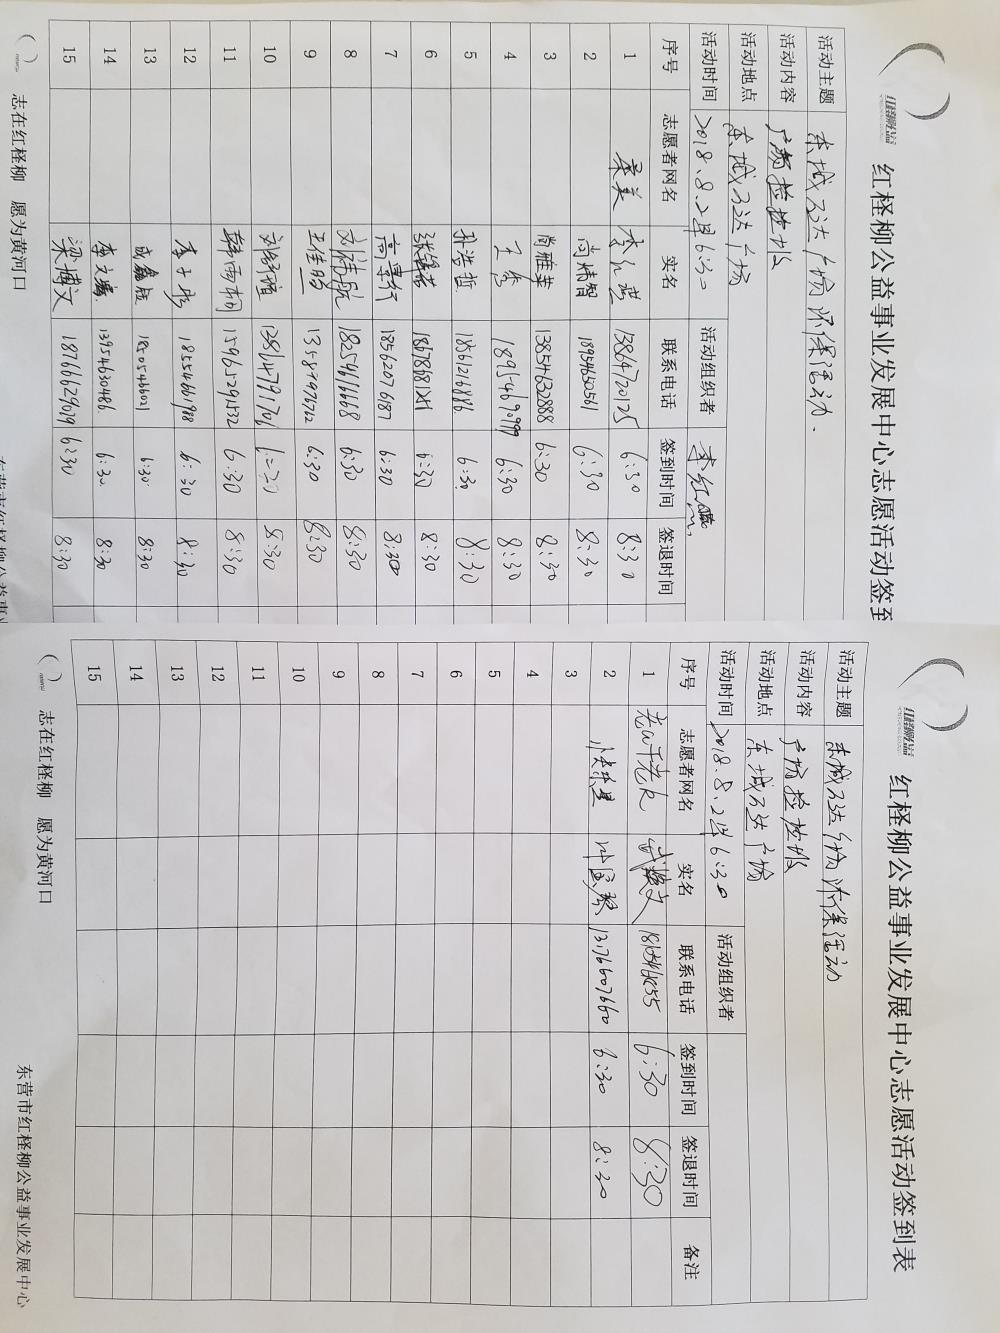 红柽柳公益事业发展中心志愿活动签到
活动主题 东城万达广场环保活动.
活动内容 广场捡垃圾
活动地点 东城万达广场
活动时间 2018.8.2日6:30 活动组织者
序号 志愿者网名 实名 联系电话 签到时间 签退时间
1 柔美 13864720125 6:30 8:30
2 尚婧智 18954650561 6:30 8:30
3 尚雅苹 13854632888 6:30 8:30
4 18954690999 6:30 8:30
5 孙浩哲 18561216886 6:30 8:30
6 18678681251 6:30 8:30
7 18562076187 6:30 8:30
8 18254616668 6:30 8:30
9 13589976762 6:30 8:30
10 8:30
11 韩雨桐 15965291532 6:30 8:30
12 18554661988 6:30 8:30
13 6:30 8:30
14 李文 13954630486 6:30 8:30
15 梁博文 18766629039 6:30 8:30
志在红柽柳 愿为黄河口
红柽柳公益事业发展中心志愿活动签到表
活动主题 东城万达广场环保活动
活动内容 广场捡垃圾
活动地点 东城万达广场
活动时间 2018.8.2日6:30 活动组织者
序号 志愿者网名 实名 联系电话 签到时间 签退时间 备注
1 6:30 8:30
2 13176607660 6:30 8:30
3
4
5
6
7
8
9
10
11
12
13
14
15
志在红柽柳 愿为黄河口 东营市红柽柳公益事业发展中心